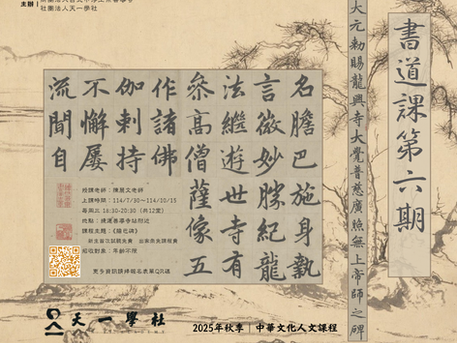 主辦
社團法人天一學社
書道課第六期
大元勅賜龍興寺大覺普慈廣照無上帝師之碑
名膽巴施身執
言微妙勝紀龍
法繼遊世寺有
叅高僧薩像五
作諸佛
伽剌持
不懈屢
流聞自
授課老師：陳 文老師
上課時間：114/7/30~114/10/15
18:30-20:30 (共12堂)
地點：捷運善導寺站附近
課程主題：《膽巴碑》
新生首次試聽免費
招收對象：年齡不限
更多資訊請掃報名表單QR碼
天一學社
2025年秋季｜中華文化人文課程